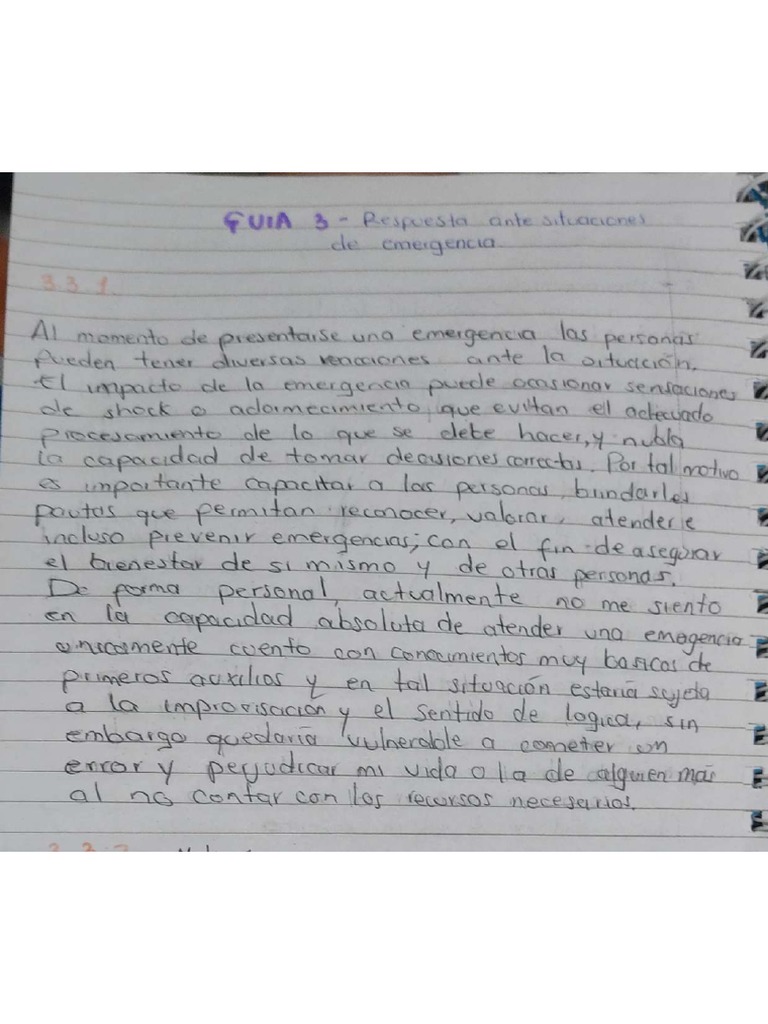 GUIA 3 - Respuesta ante situaciones
de emergencia
3.3.1.
Al momento de presentarse una emergencia las personas
pueden tener diversas reacciones ante la situación.
El impacto de la emergencia puede ocasionar sensaciones
de shock o adormecimiento, que evitan el adecuado
procesamiento de lo que se debe hacer, y nubla
la capacidad de tomar decisiones correctas. Por tal motivo
es importante capacitar a las personas, brindarles
pautas que permitan reconocer, valorar, atender e
incluso prevenir emergencias; con el fin de asegurar
el bienestar de si mismo y de otras personas.
De forma personal, actualmente no me siento
en la capacidad absoluta de atender una emegencia
unicamente cuento con conocimientos muy basicos de
primeros auxilios y en tal situación estaria sujeta
a la improvisación y el sentido de logica, sin
embargo quedaría vulnerable a cometer un
error y perjudicar mi vida o la de alguien más
al no contar con los recursos necesarios.